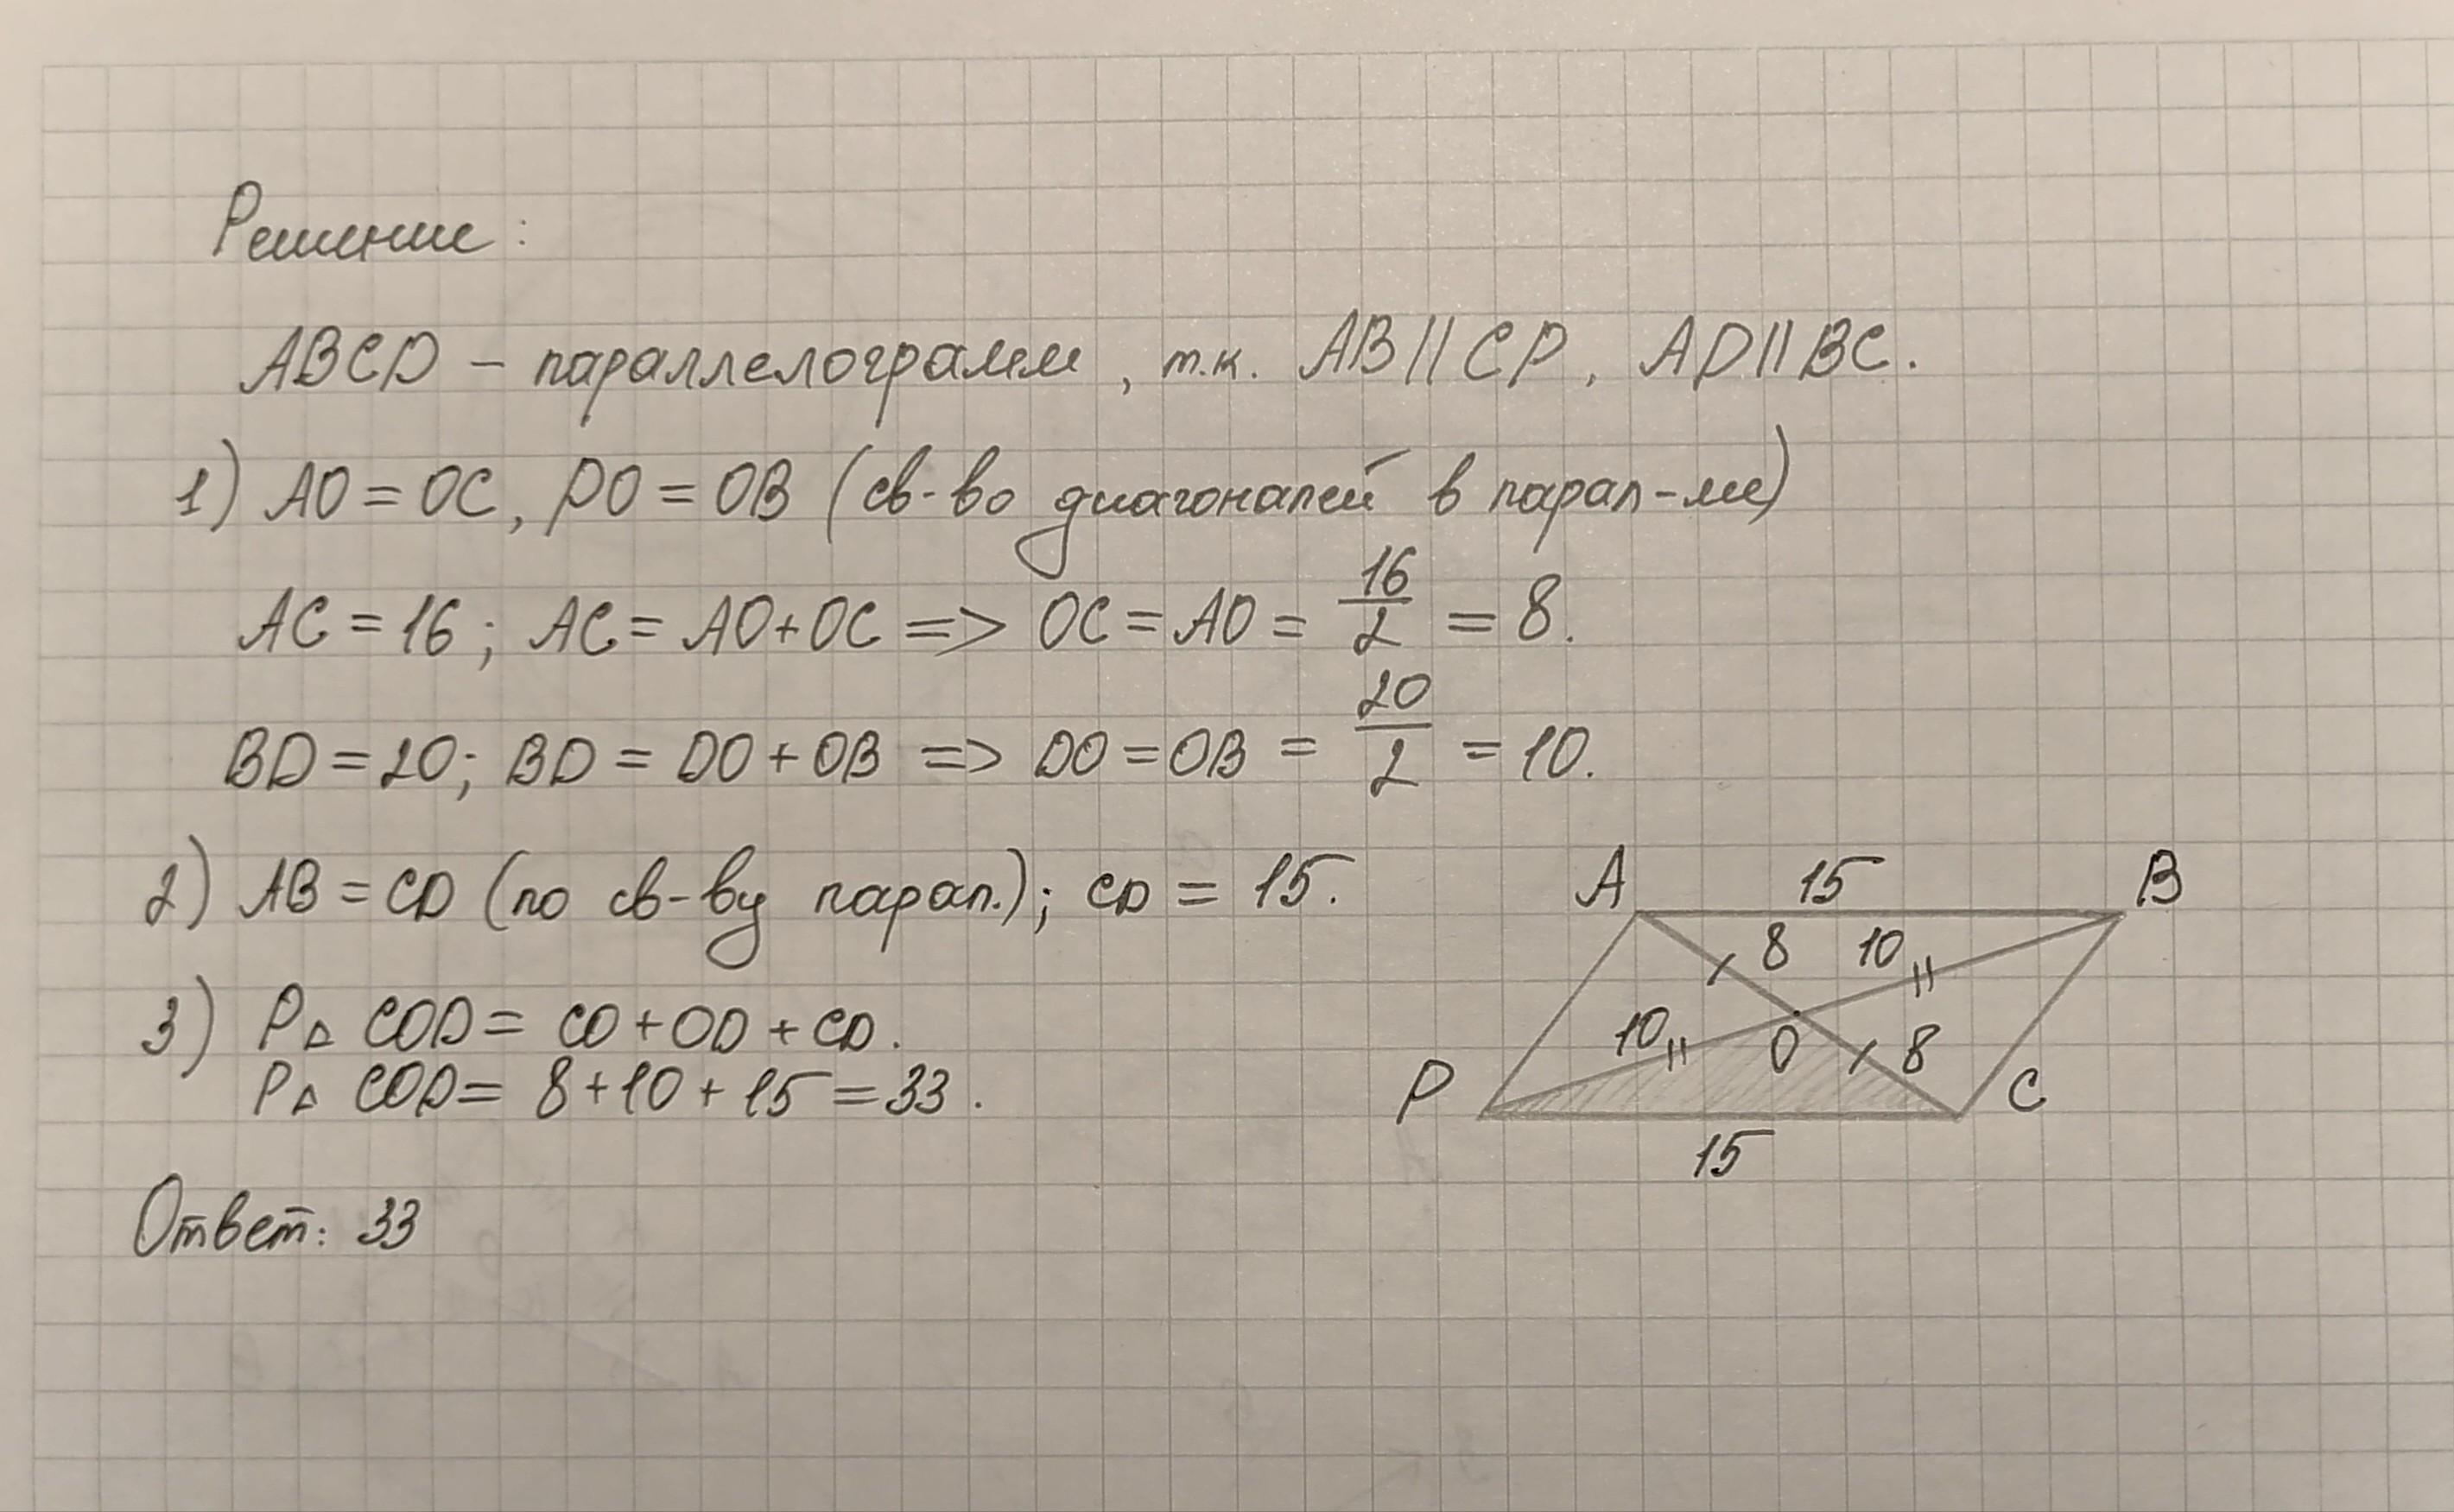 Решение:
ABCD – параллелограмм, т.к. AB || CD, AD || BC.
1) AO = OC, DO = OB (св-во диагоналей в парал-ме)
AC = 16; AC = AO + OC => OC = AO = 16/2 = 8.
BD = 20; BD = DO + OB => DO = OB = 20/2 = 10.
2) AB = CD (по св-ву парал.); CD = 15.
3) P△ COD = CO + OD + CD.
P△ COD = 8 + 10 + 15 = 33.
Ответ: 33
A 15 B
8 10
10 O 8
D C
15